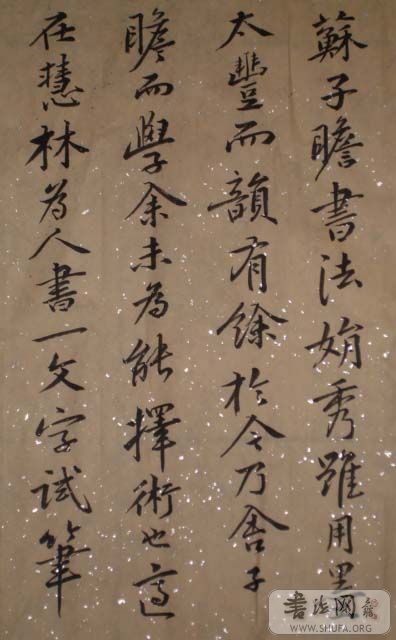 蘇子瞻書法娟秀雖用墨
太豐而韻有餘於今乃舍子
瞻而學余未為能擇術也適
在慧林為人書一文字試筆
書法网
WWW.SHUFA.ORG